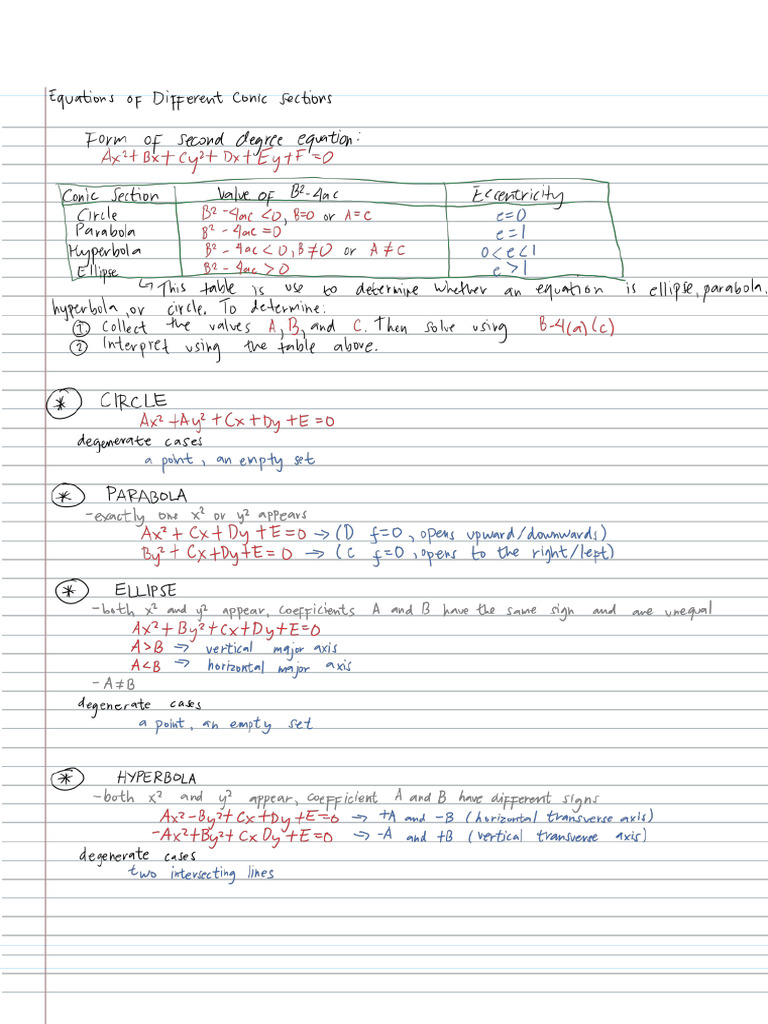 Equations of Different Conic Sections
Form of second degree equation:
Ax²+Bx+Cy²+Dx+Ey+F=0
Conic Section Value of B²-4ac Eccentricity
Circle B²-4ac<0, B=0 or A=C e=0
Parabola B²-4ac=0 e=1
Hyperbola B²-4ac<0, B≠0 or A≠C 0<e<1
Ellipse B²-4ac>0 e>1
↳ This table is use to determine whether an equation is ellipse, parabola,
hyperbola, or circle. To determine:
① Collect the values A, B, and C. Then solve using B-4(a)(c)
② Interpret using the table above.
* CIRCLE
Ax²+Ay²+Cx+Dy+E=0
degenerate cases
a point, an empty set
* PARABOLA
-exactly one x² or y² appears
Ax²+Cx+Dy+E=0 → (D f=0, opens upward/downwards)
By²+Cx+Dy+E=0 → (C f=0, opens to the right/left)
* ELLIPSE
-both x² and y² appear, coefficients A and B have the same sign and are unequal
Ax²+By²+Cx+Dy+E=0
A>B → vertical major axis
A<B → horizontal major axis
-A≠B
degenerate cases
a point, an empty set
* HYPERBOLA
-both x² and y² appear, coefficient A and B have different signs
Ax²-By²+Cx+Dy+E=0 → +A and -B (horizontal transverse axis)
-Ax²+By²+Cx Dy+E=0 → -A and +B (vertical transverse axis)
degenerate cases
two intersecting lines